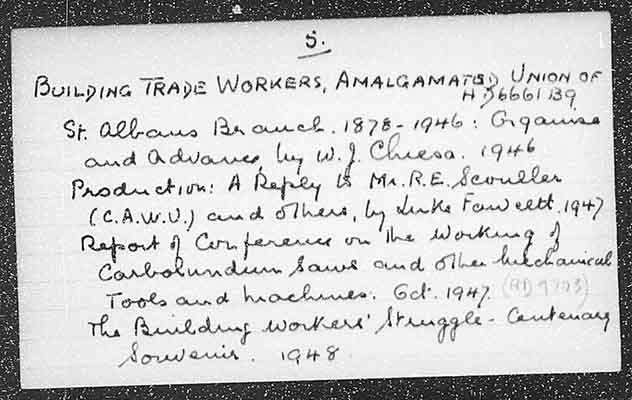 5.
BUILDING TRADE WORKERS, AMALGAMATED UNION OF
HD6661 B9
St. Albans Branch. 1878-1946: Organise
and Advance, by W. J. Chiesa. 1946
Production: A Reply to Mr. R.E. Scouller
(C.A.W.U.) and others, by Luke Fawcett. 1947
Report of Conference on the Working of
Carborundum Saws and other Mechanical
Tools and Machines. Oct. 1947. (HD 9773)
The Building Workers' Struggle - Centenary
Souvenir. 1948.